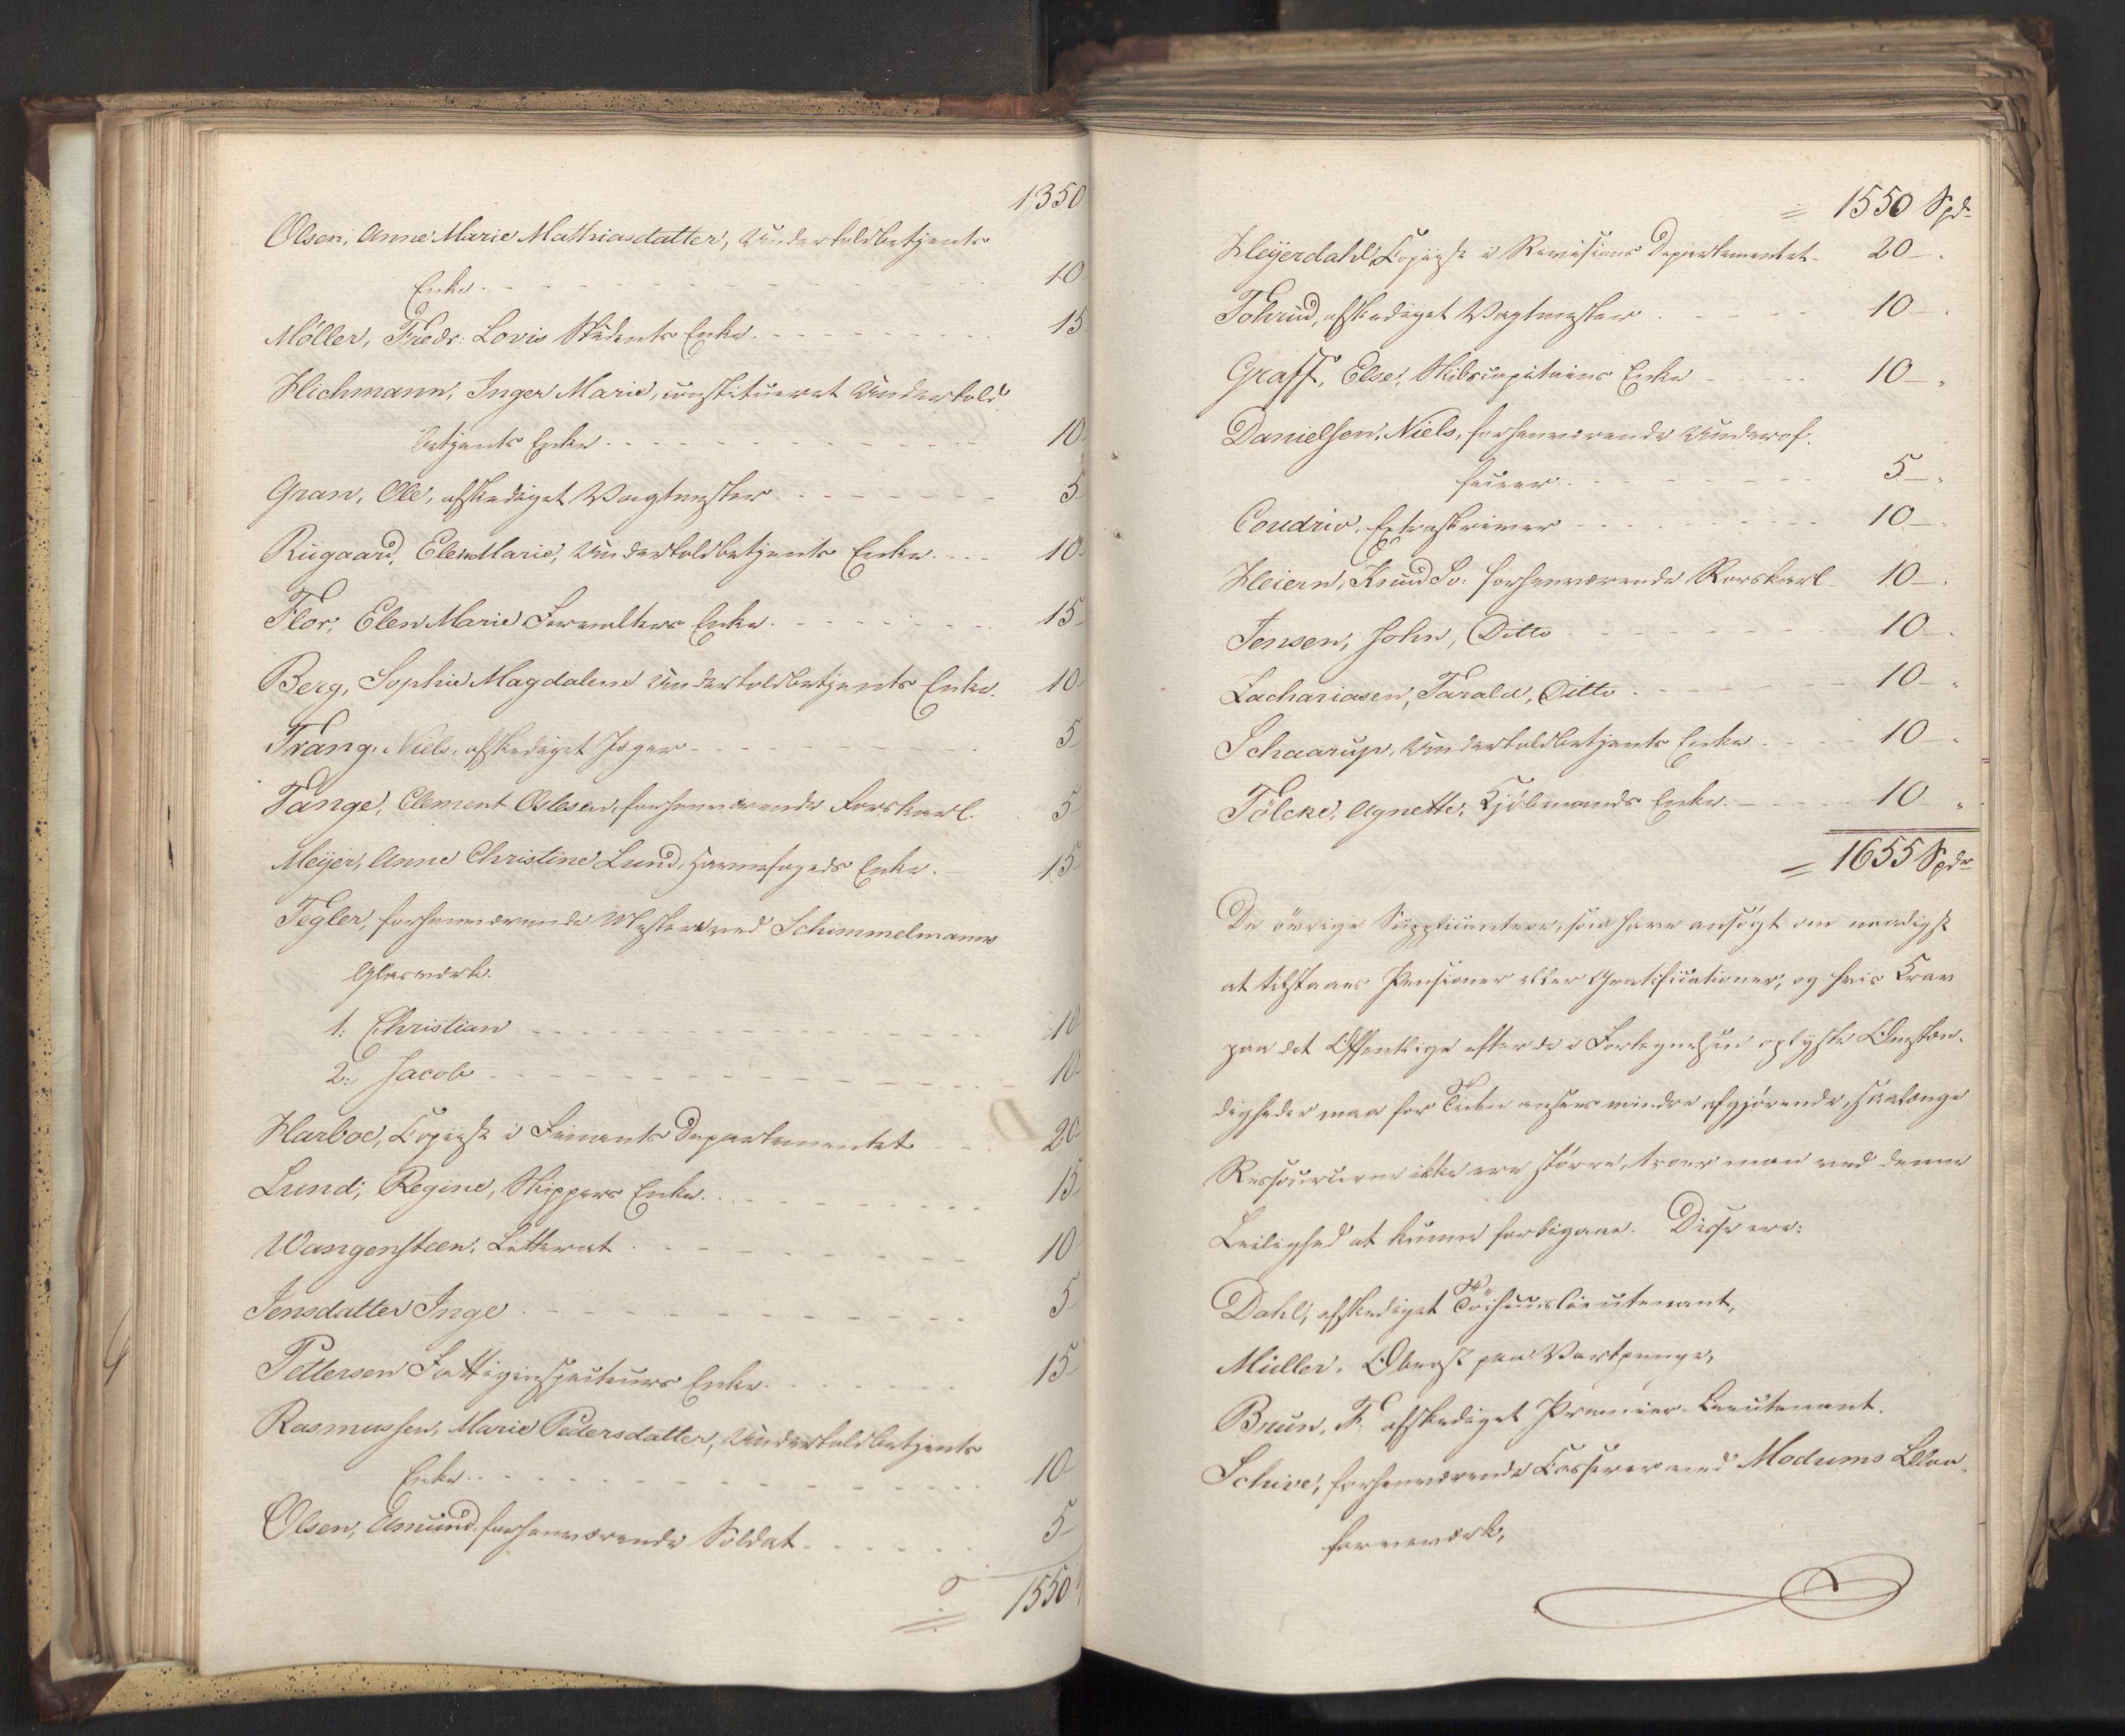 1350
Olsen, Anne Marie Mathiasdatter, Undertoldbetjents
Enke. 10
Møller, Fredr: Lovis Students Enke. 15
Hichmann, Inger Marie, constitueret Undertold
betjents Enke. 10
Gran, Ole, afskediget Vagtmester. 5
Riigaard, Elen Marie, Undertoldbetjents Enke. 10
Flor, Elen Marie Forvalters Enke. 15
Berg, Sophie Magdalene Undertoldbetjents Enke. 10
Trang, Niels, afskediget Jæger 5
Tange, Clement Oslesen, forhenværende Korskarl. 5
Meÿer, Anne Christine Lund, Havnefogeds Enke. 15
Tegler, forhenværende Mester ved Schimmelmanns
Glasværk.
1: Christian 10
2: Jacob 10
Harboe, Copiist i Finants Departementet 20
Lund, Regine, Skippers Enke. 15
Wangensteen, Litterat 10
Jensdatter Inge 5
Pettersen Fattiginspecteurs Enke. 15
Rasmussen, Marie Pedersdatter, Undertoldbetjents
Enke. 10
Olsen, Amund, forhenværende Soldat. 5
= 1550
= 1550 Spd
Heÿerdahl Copiist i Revisions Departementet 20 -
Tohrud, afskediget Vagtmester 10 -
Graff, Else, Skibscapitains Enke 10 -
Danielsen, Niels, forhenværende Underof.
ficeer. 5 -
Coudrio, Extraskriver 10 -
Heiern, Knud So: forhenværende Korskarl 10 -
Jensen, John, Ditto 10 -
Zachariasen, Tarald, Ditto 10 -
Schaarup, Undertoldbetjents Enke 10 -
Tölcke, Agnette, Kjöbmands Enke. 10 -
= 1655 Spdr
De övrige Supplicantere, som have ansögt om naadigst
at tilstaaes Pensioner eller Gratificationer, og hvis Krav
paa det Offentlige efter de i Fortegnelsen oplyste Omstæn-
digheder maa for Tiden ansees mindre afgjörende, saalænge
Ressourcerne ikke ere större, troer man ved denne
Leilighed at kunne forbigaae. Disse ere:
Dahl, afskediget Töihuuslieutenant,
Müller, Oberst paa Vartpenge,
Brun, F. afskediget Premier-Lieutenant.
Schive, forhenværende Casserer ved Modums Blaa-
farveværk,